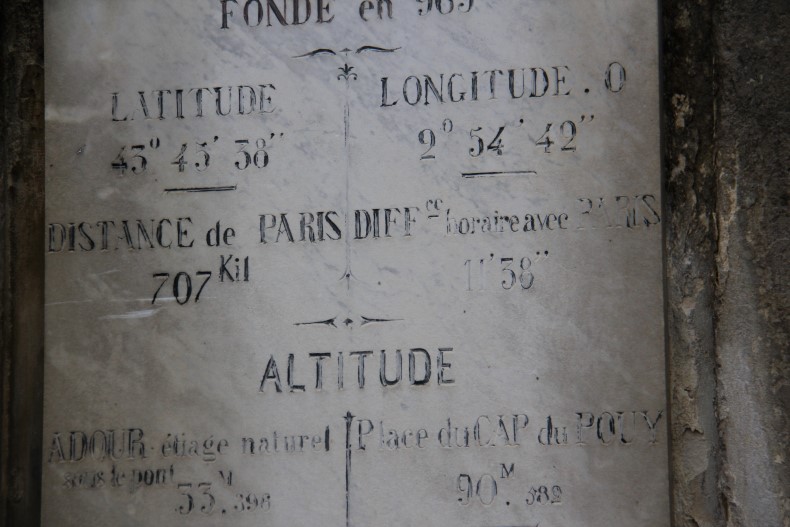 FONDÉ en 989
LATITUDE
43° 45' 38"
LONGITUDE . O
2° 54' 42"
DISTANCE de PARIS
707 Kil
DIFF ce horaire avec PARIS
11' 38"
ALTITUDE
ADOUR étiage naturel
sous le pont
33 M. 398
Place du CAP du POUY
90 M. 582